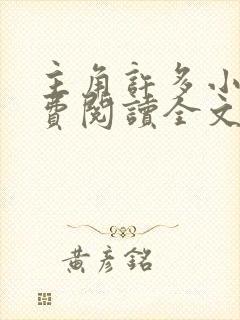 主角許多小
費閱讀全文
黃彥銘